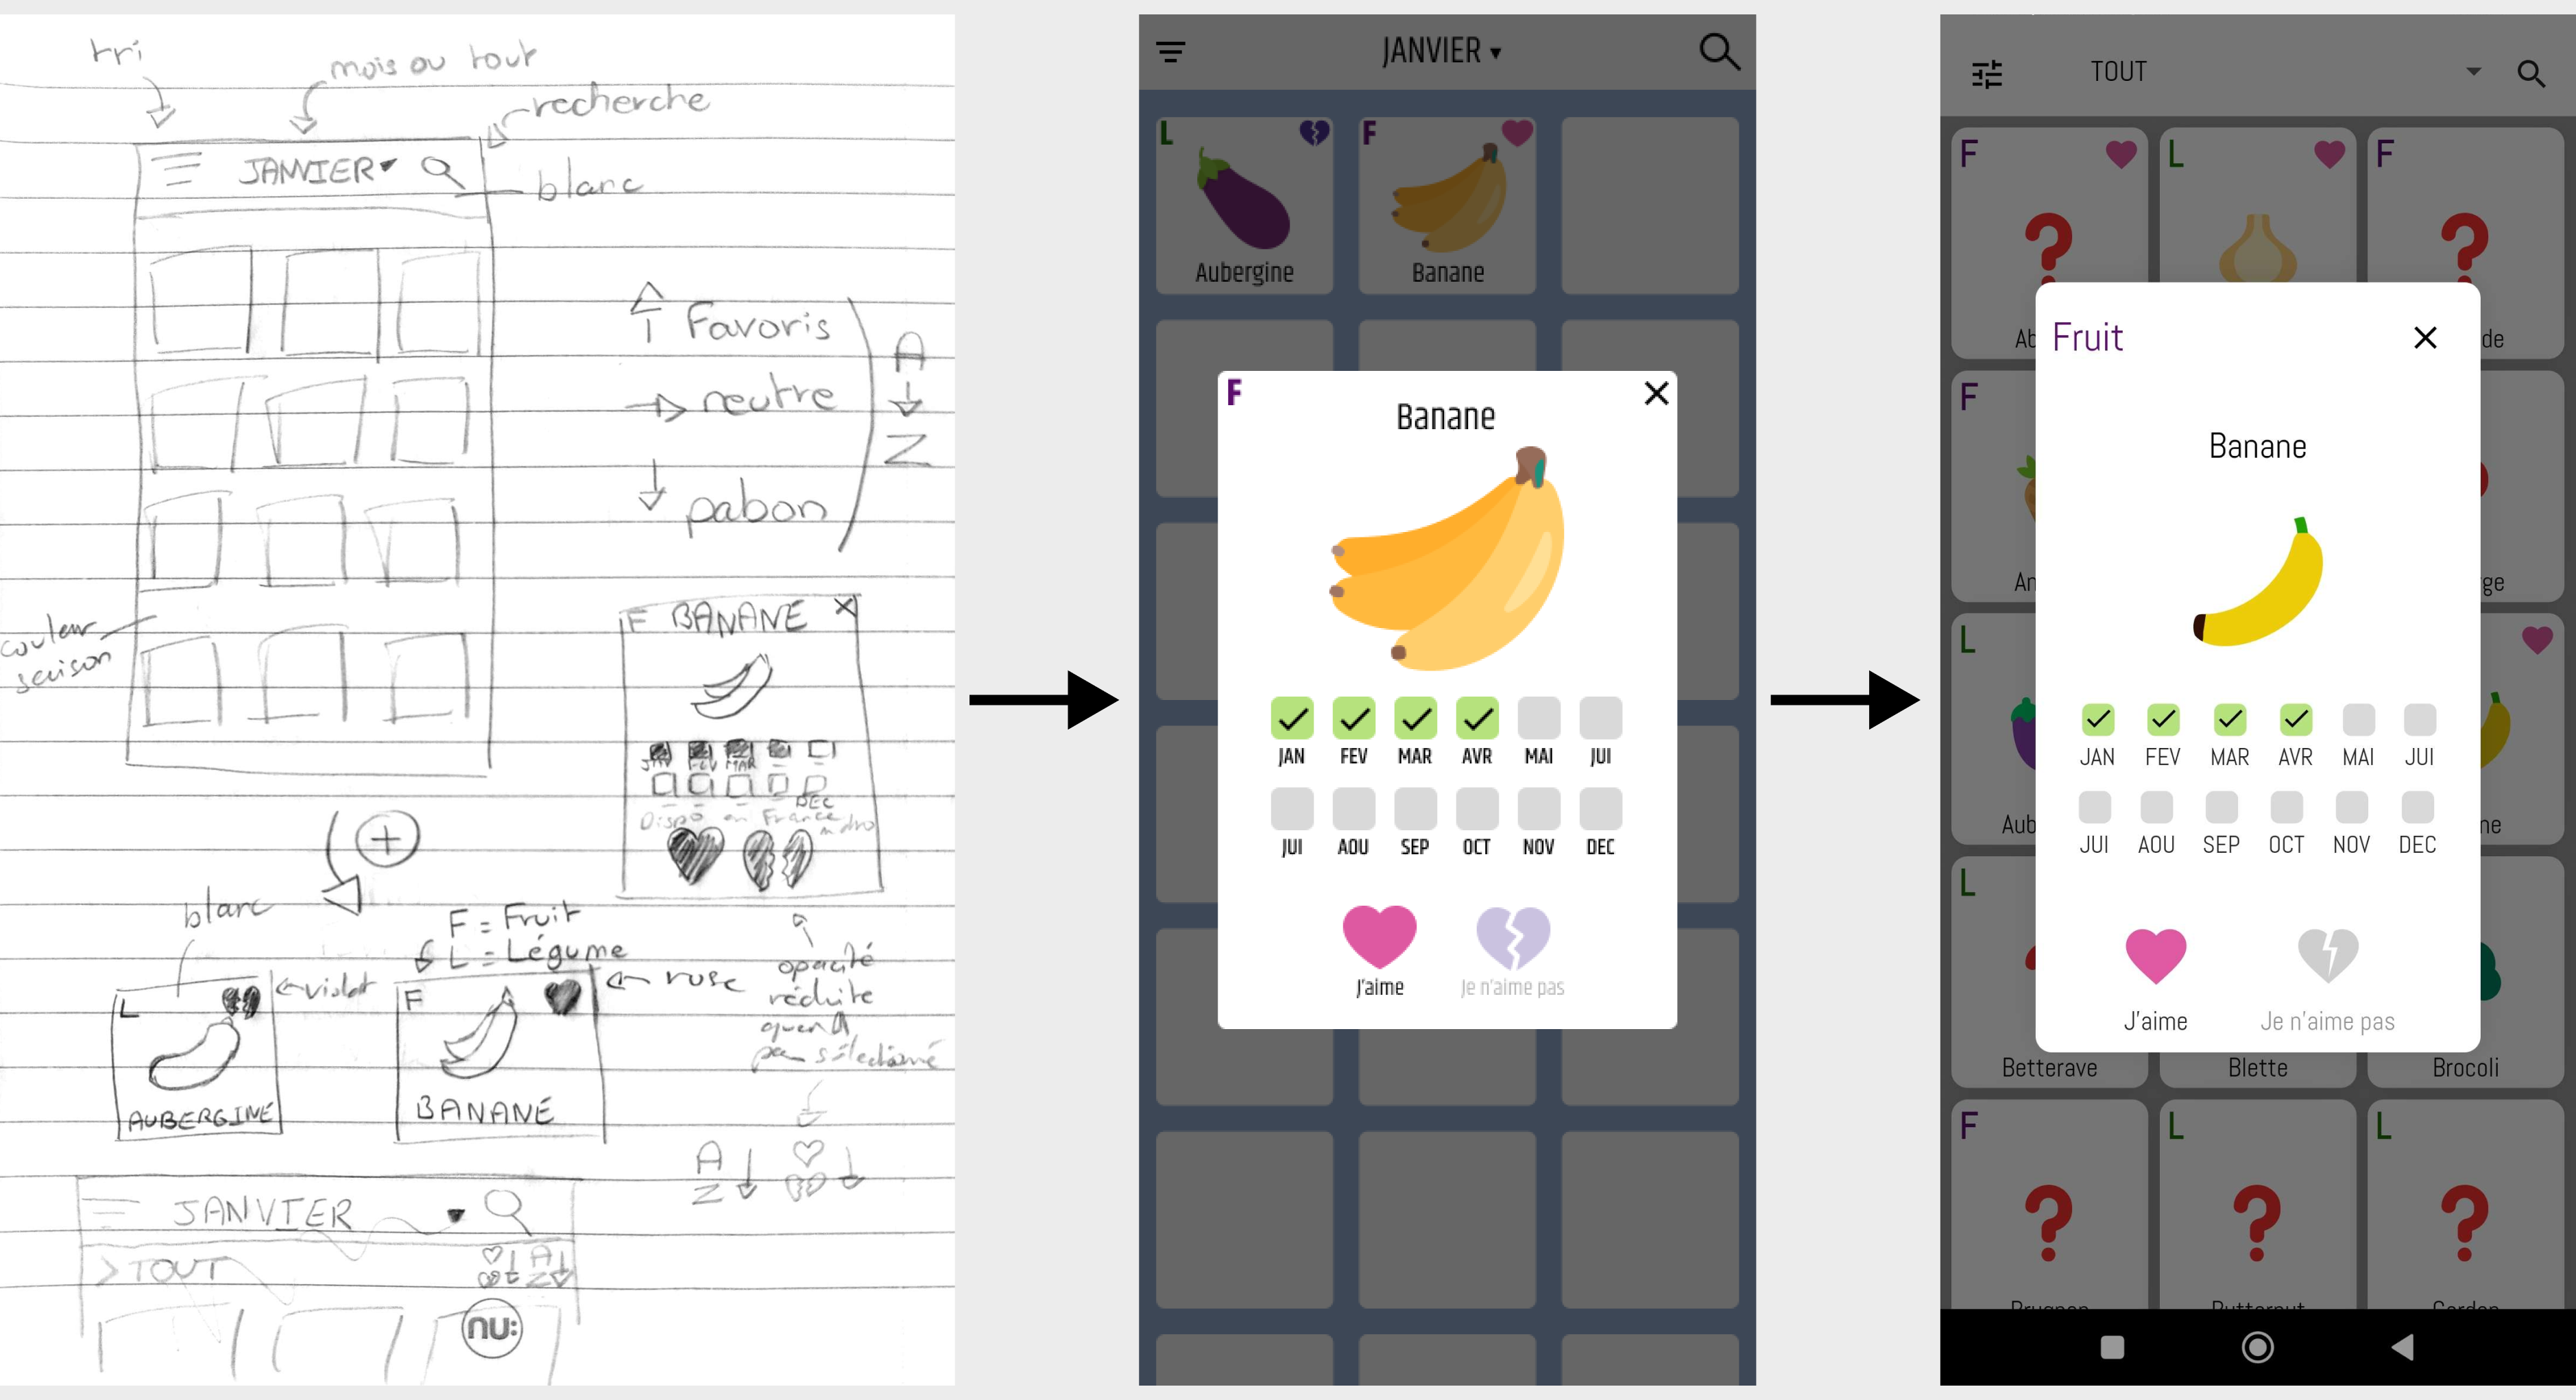 tri
mois ou tout
recherche
JANVIER
blanc
Favoris
neutre
pabon
A
Z
couleur
saison
F BANANE X
JAN FEV MAR
DEC
Dispo en France
blanc
F = Fruit
L = Légume
violet
rose
L
AUBERGINE
F
BANANE
opacité
réduite
quand
pas sélectionné
A
Z
JANVIER
> TOUT
A
Z
nu:
JANVIER
L
Aubergine
F
Banane
F
Banane
JAN FEV MAR AVR MAI JUI
JUI AOU SEP OCT NOV DEC
J'aime
Je n'aime pas
TOUT
F
L
F
Ab
de
F
An
ge
L
Aub
ne
L
Betterave
Blette
Brocoli
F
L
L
Fruit
Banane
JAN FEV MAR AVR MAI JUI
JUI AOU SEP OCT NOV DEC
J'aime
Je n'aime pas